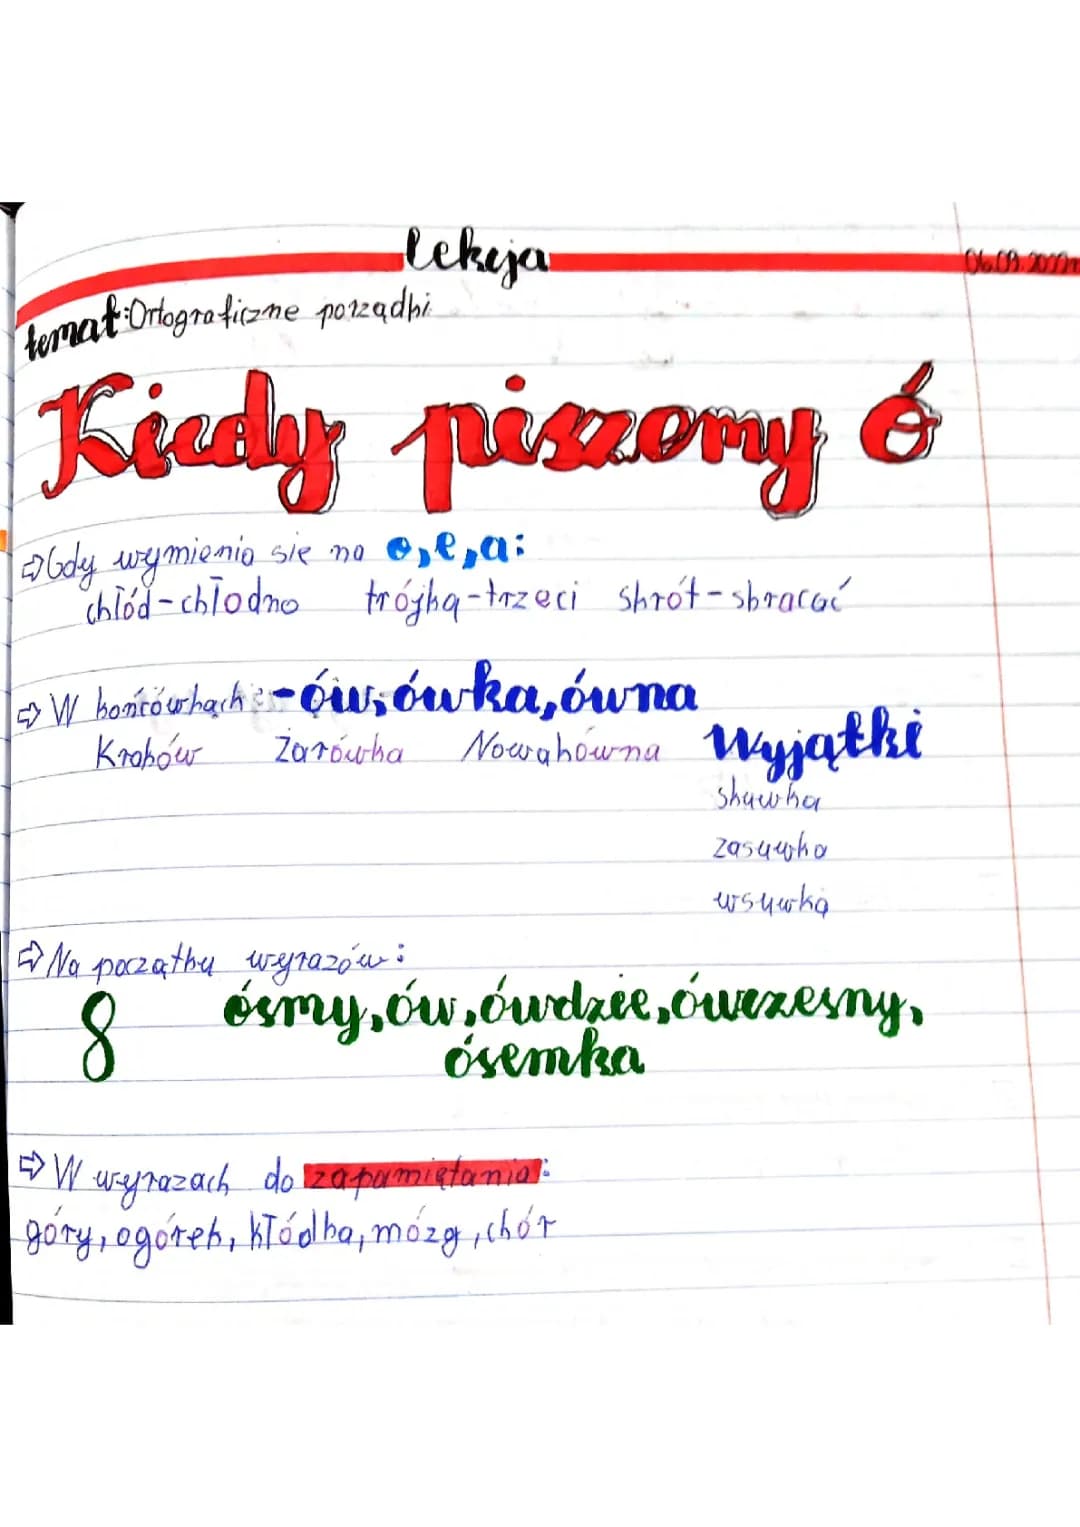 lekcja
06.09.2022r
temat: Ortograficzne porządki
Kiedy piszemy ó
⇨Gdy wymienia się na o,e,a:
chłód-chłodno trójka-trzeci skrót-skracać
⇨ W końcówkach: -ów, ówka, ówna
Kraków Żarówka Nowakówna Wyjątki
skuwka
zasuwka
wsuwka
⇨ Na początku wyrazów:
8 ósmy, ów, ówdzie, ówczesny,
ósemka
⇨ W wyrazach do zapamiętania:
góry, ogórek, kłódka, mózg, chór